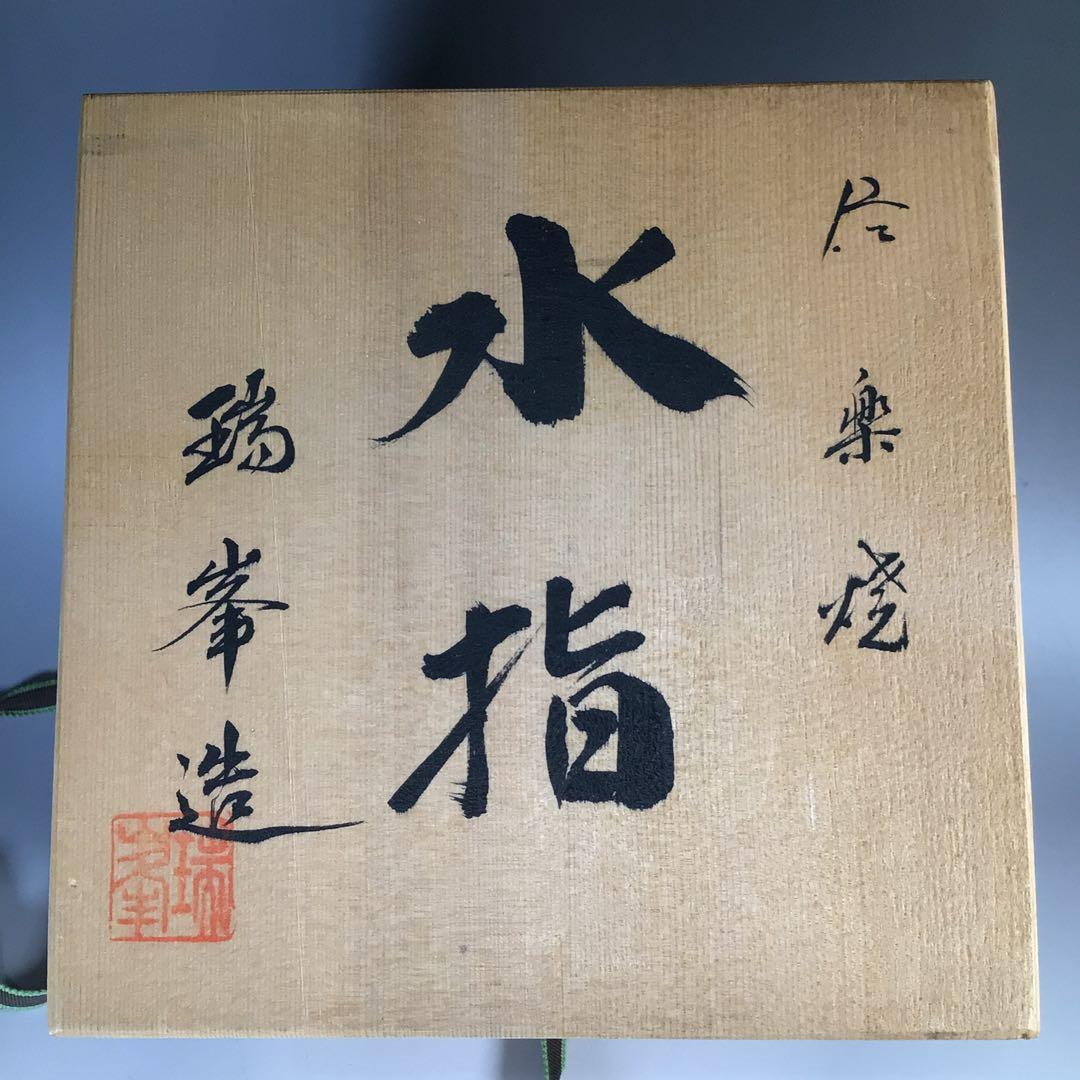 信楽焼
水指
瑞峯造
瑞峯